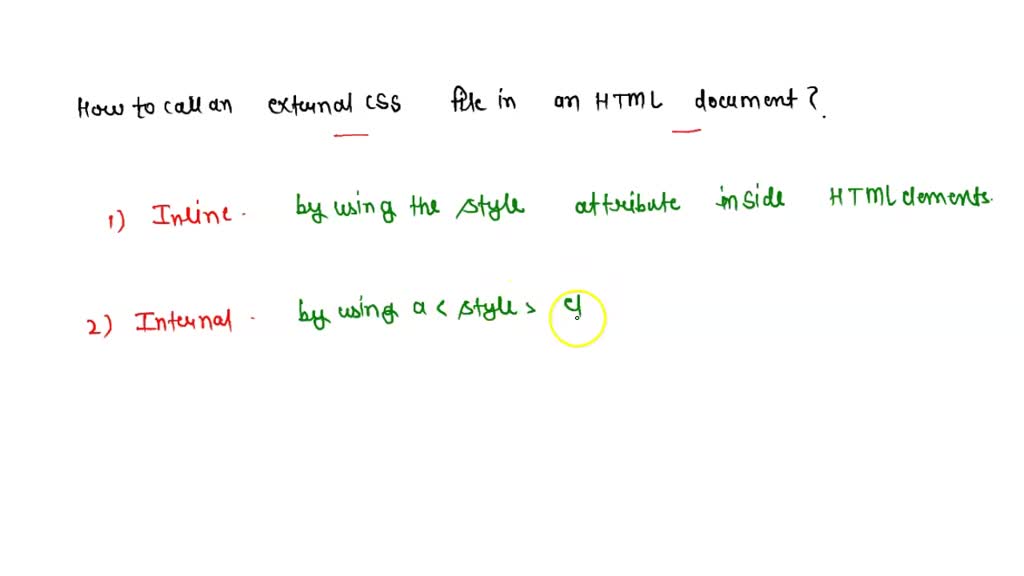 How to call an external CSS file in an HTML document?
1) Inline. by using the style attribute inside HTML elements.
2) Internal. by using a < style > el